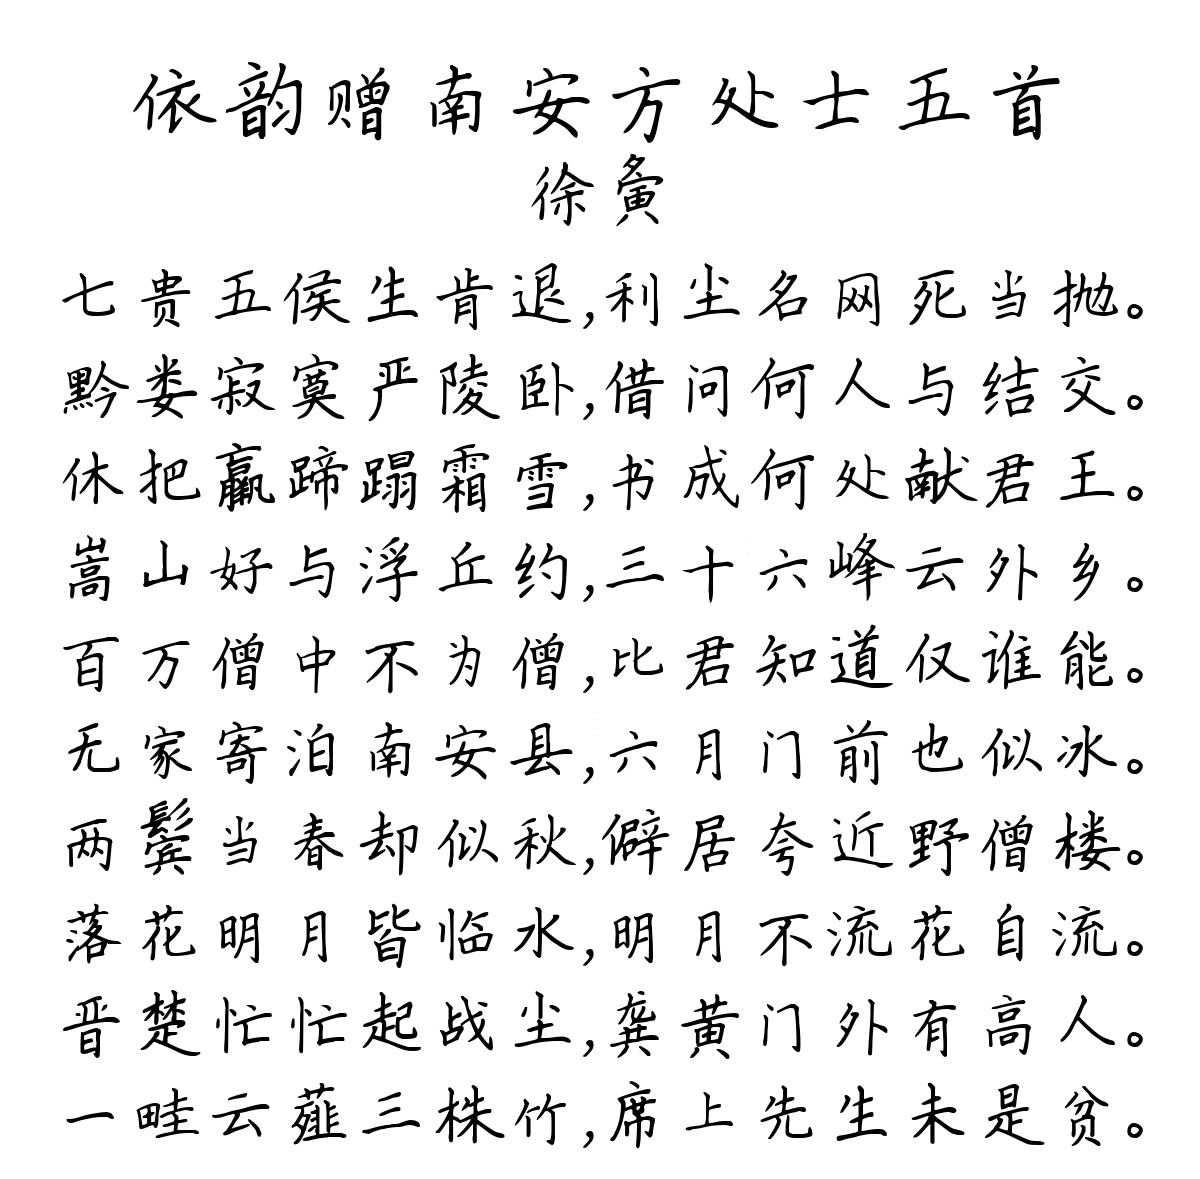 依韵赠南安方处士五首
徐夤
七贵五侯生肯退,利尘名网死当抛。
黔娄寂寞严陵卧,借问何人与结交。
休把羸蹄蹋霜雪,书成何处献君王。
嵩山好与浮丘约,三十六峰云外乡。
百万僧中不为僧,比君知道仅谁能。
无家寄泊南安县,六月门前也似冰。
两鬓当春却似秋,僻居夸近野僧楼。
落花明月皆临水,明月不流花自流。
晋楚忙忙起战尘,龚黄门外有高人。
一畦云薤三株竹,席上先生未是贫。